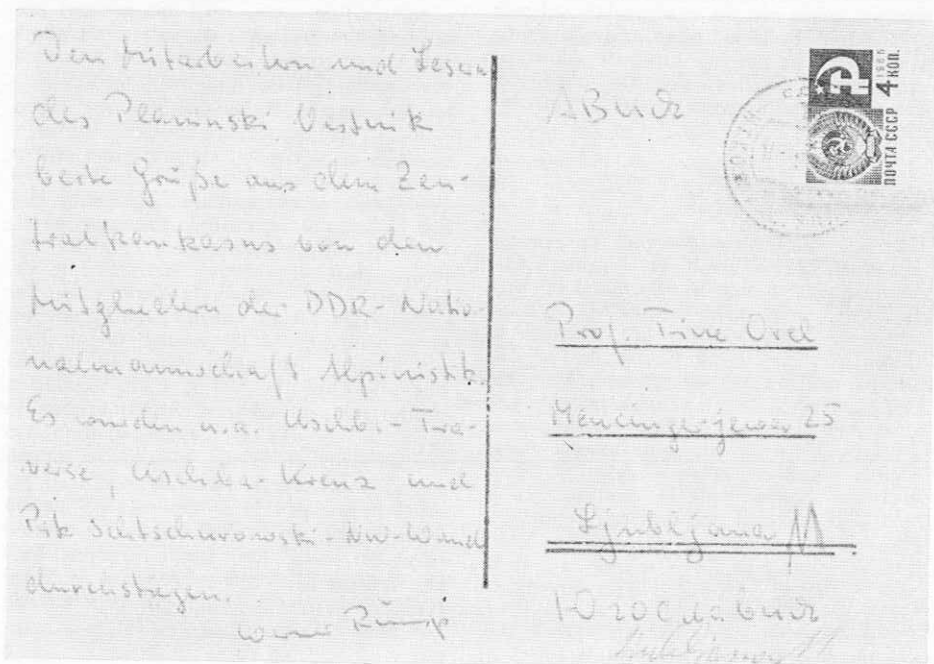 Den Mitarbeitern und Lesern
des Planinski Vestnik
beste Grüße aus dem Zen-
tralkaukasus von den
Mitgliedern der DDR-Natio-
nalmannschaft Alpinistik.
Es wurden u.a. Uschba-Tra-
verse, Uschba-Kreuz und
Pik Schtschurowski-NW-Wand
durchstiegen.
АВИА
1966
4 КОП.
ПОЧТА СССР
Prof. Tine Orel
Mencingerjeva 25
Ljubljana
Югославия